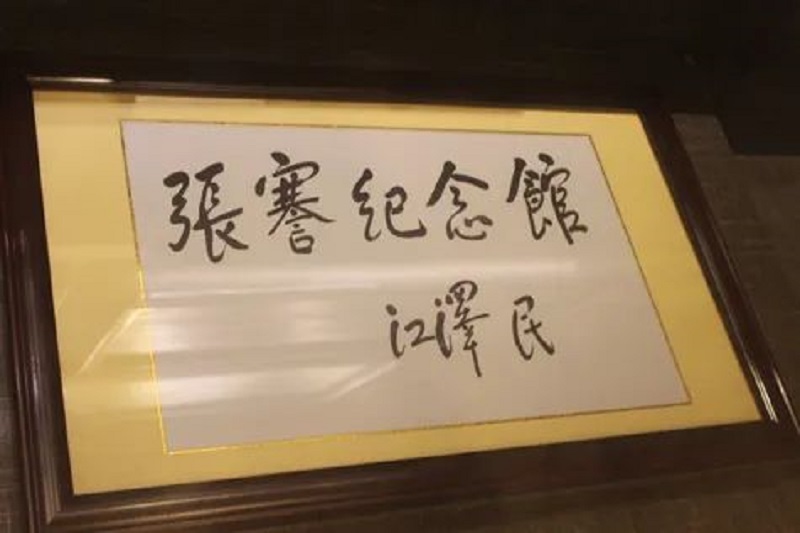 張謇紀念館
江澤民